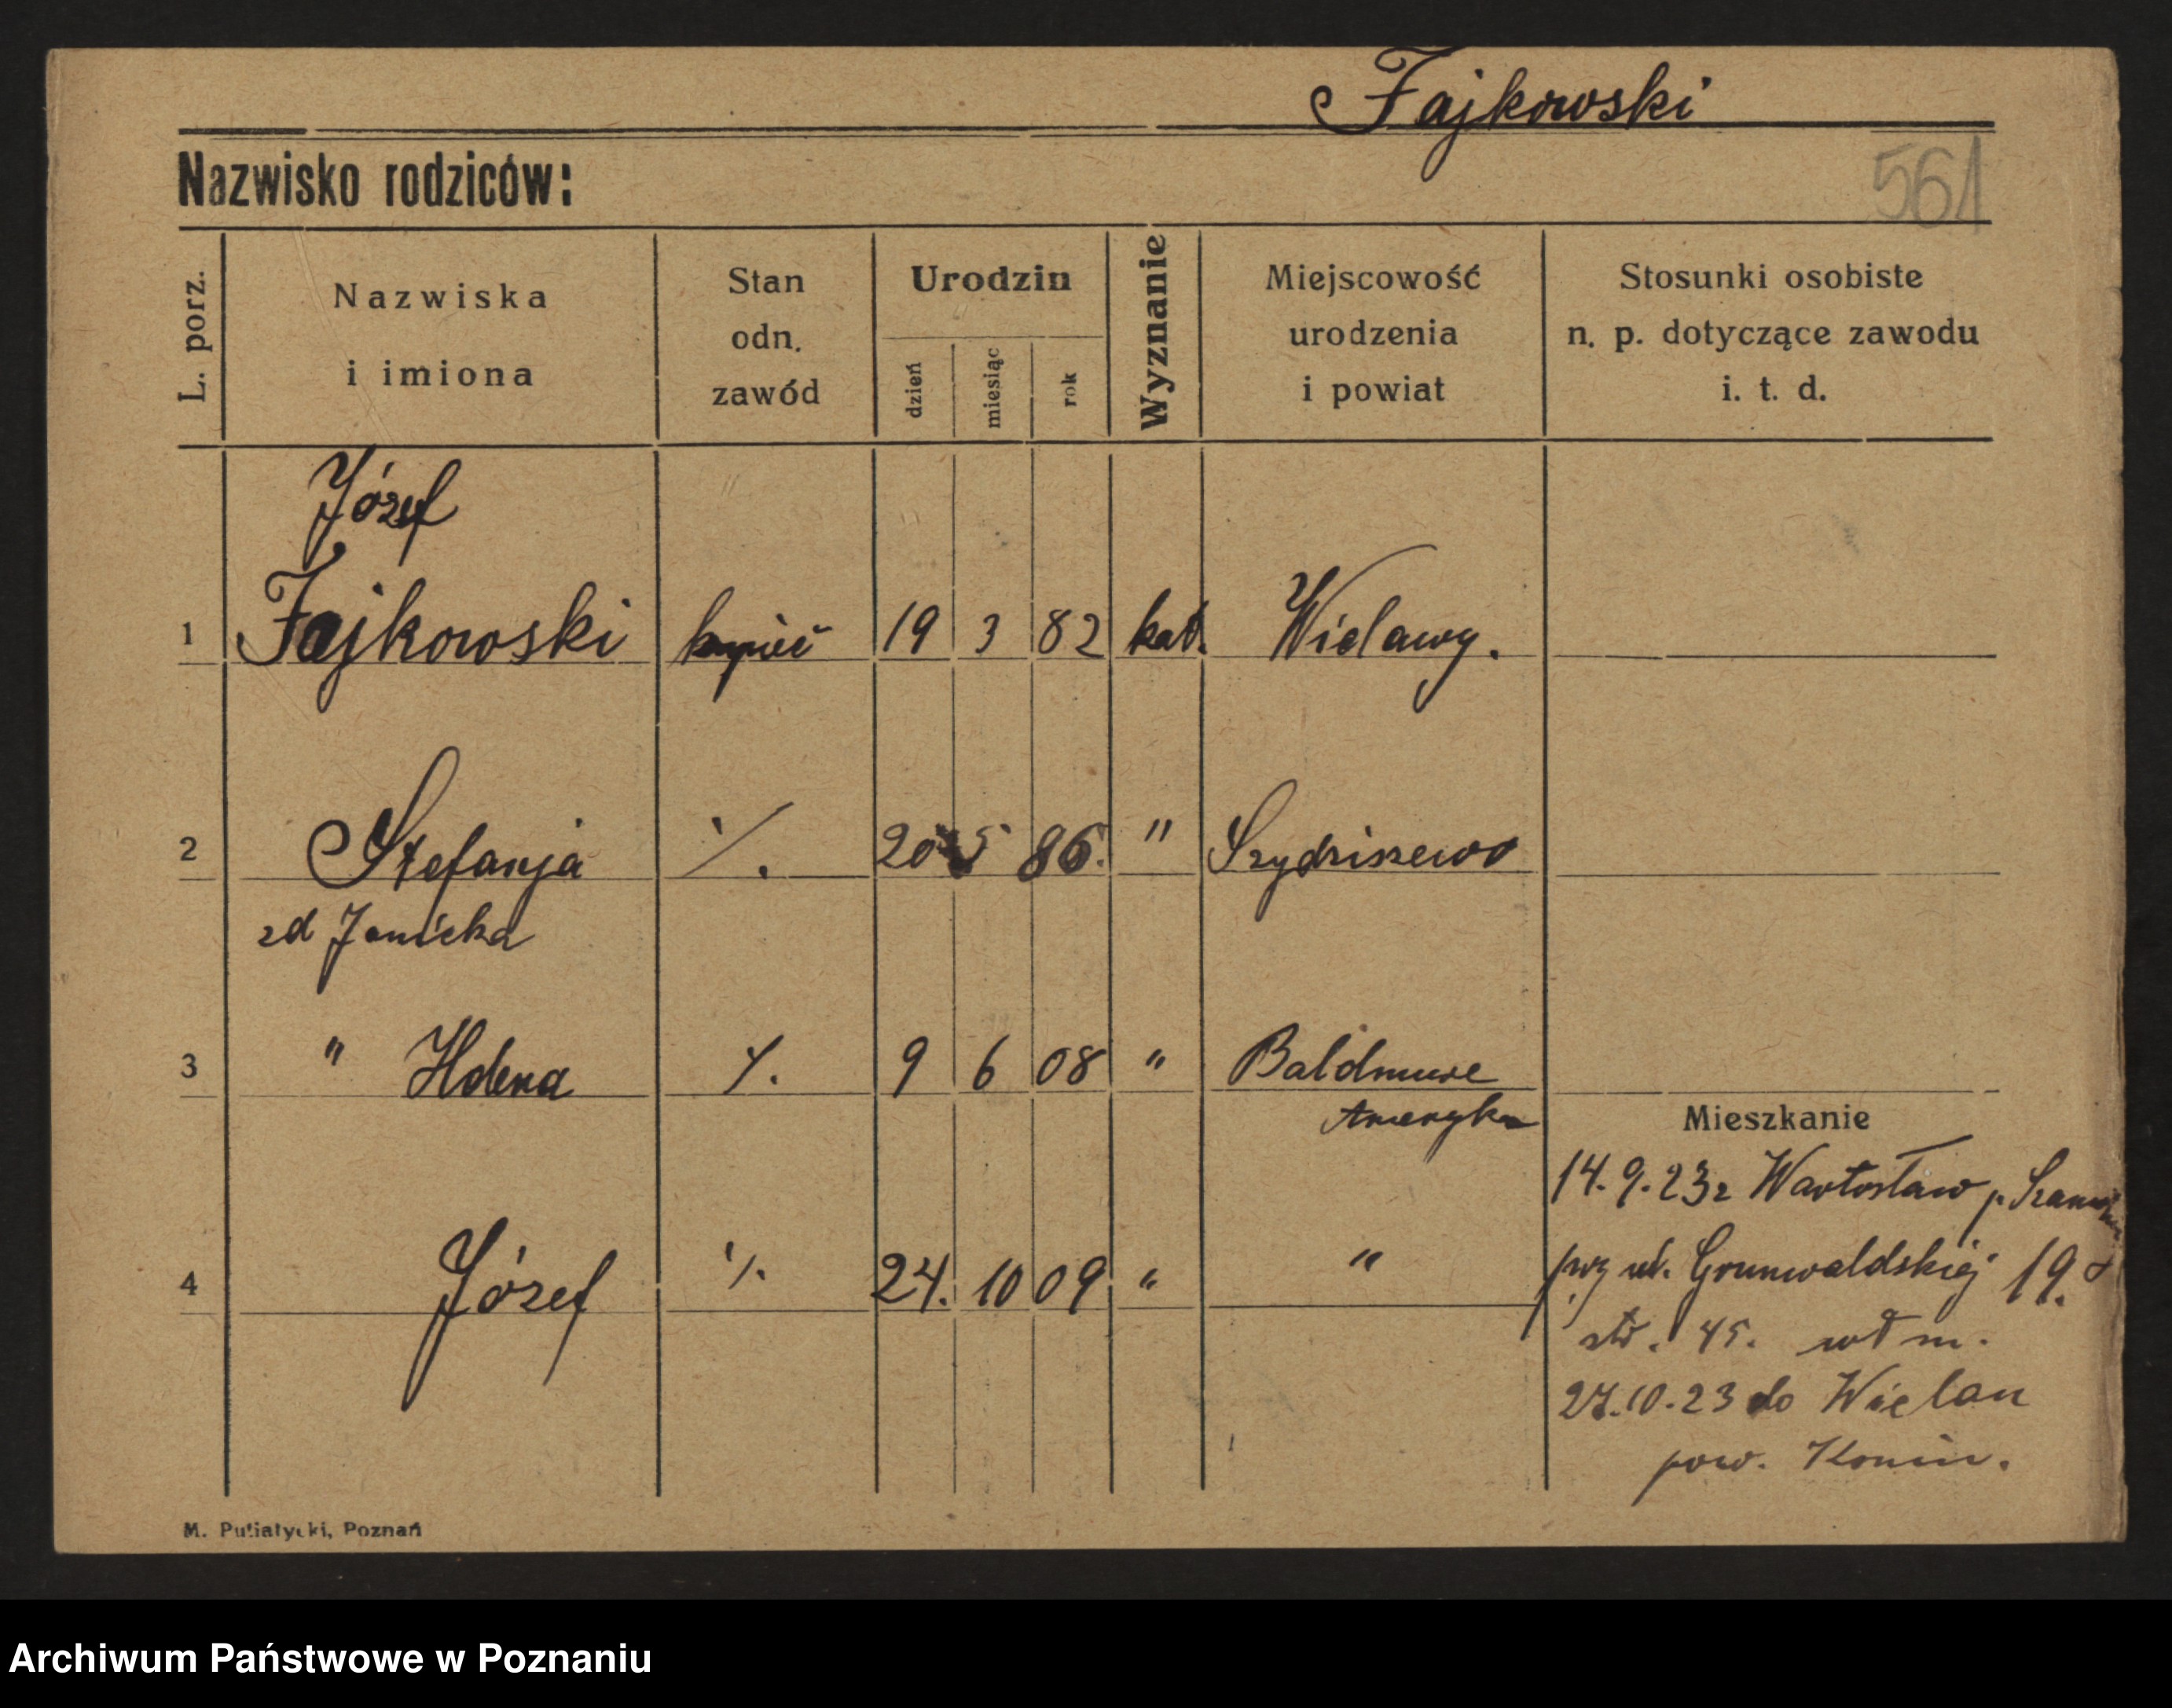 Fajkowski
Nazwisko rodziców:
561
L. porz.
Nazwiska
i imiona
Stan
odn.
zawód
Urodzin
dzień
miesiąc
rok
Wyznanie
Miejscowość
urodzenia
i powiat
Stosunki osobiste
n. p. dotyczące zawodu
i. t. d.
Józef
1 Fajkowski kupiec 19 3 82 kat. Wielawy.
2 Stefanja ./. 20 5 86. " Szydziszewo
zd Janicka
3 " Helena ./. 9 6 08 "
Ameryka
Mieszkanie
14. 9. 23 z Wartosław p.
4 Józef ./. 24. 10 09 " "
przy ul. Grunwaldskiej 19.
str. 45.
27.10.23 do Wielan
pow. Konin.
M. Putiatycki, Poznań
Archiwum Państwowe w Poznaniu